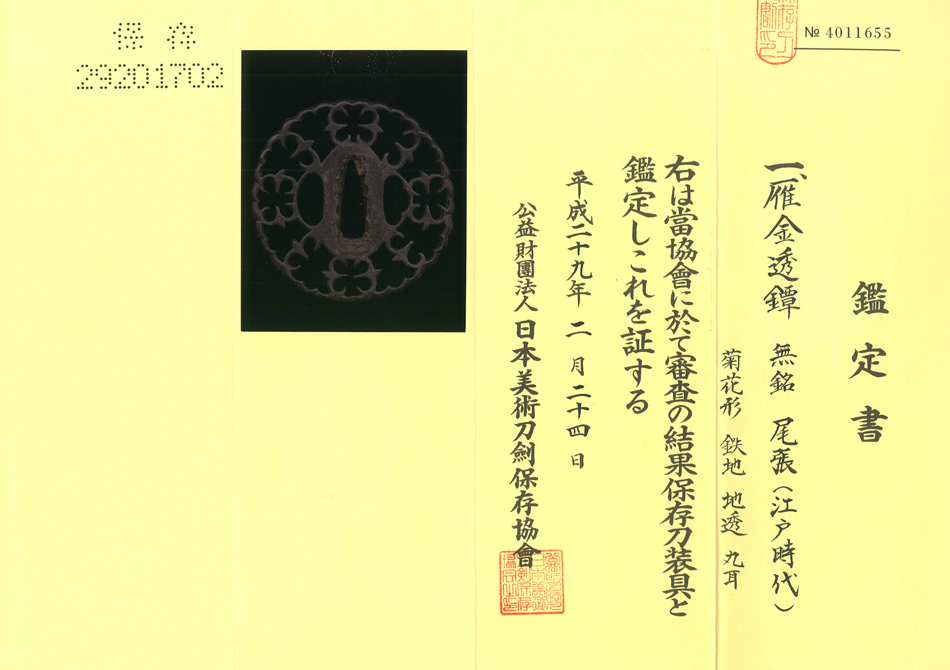 № 4011655
鑑定書
一、雁金透鐔 無銘 尾張(江戸時代)
菊花形 鉄地 地透 丸耳
右は當協會に於て審査の結果保存刀装具と
鑑定しこれを証する
平成二十九年 二月二十四日
公益財團法人 日本美術刀劍保存協會
保存
29201702